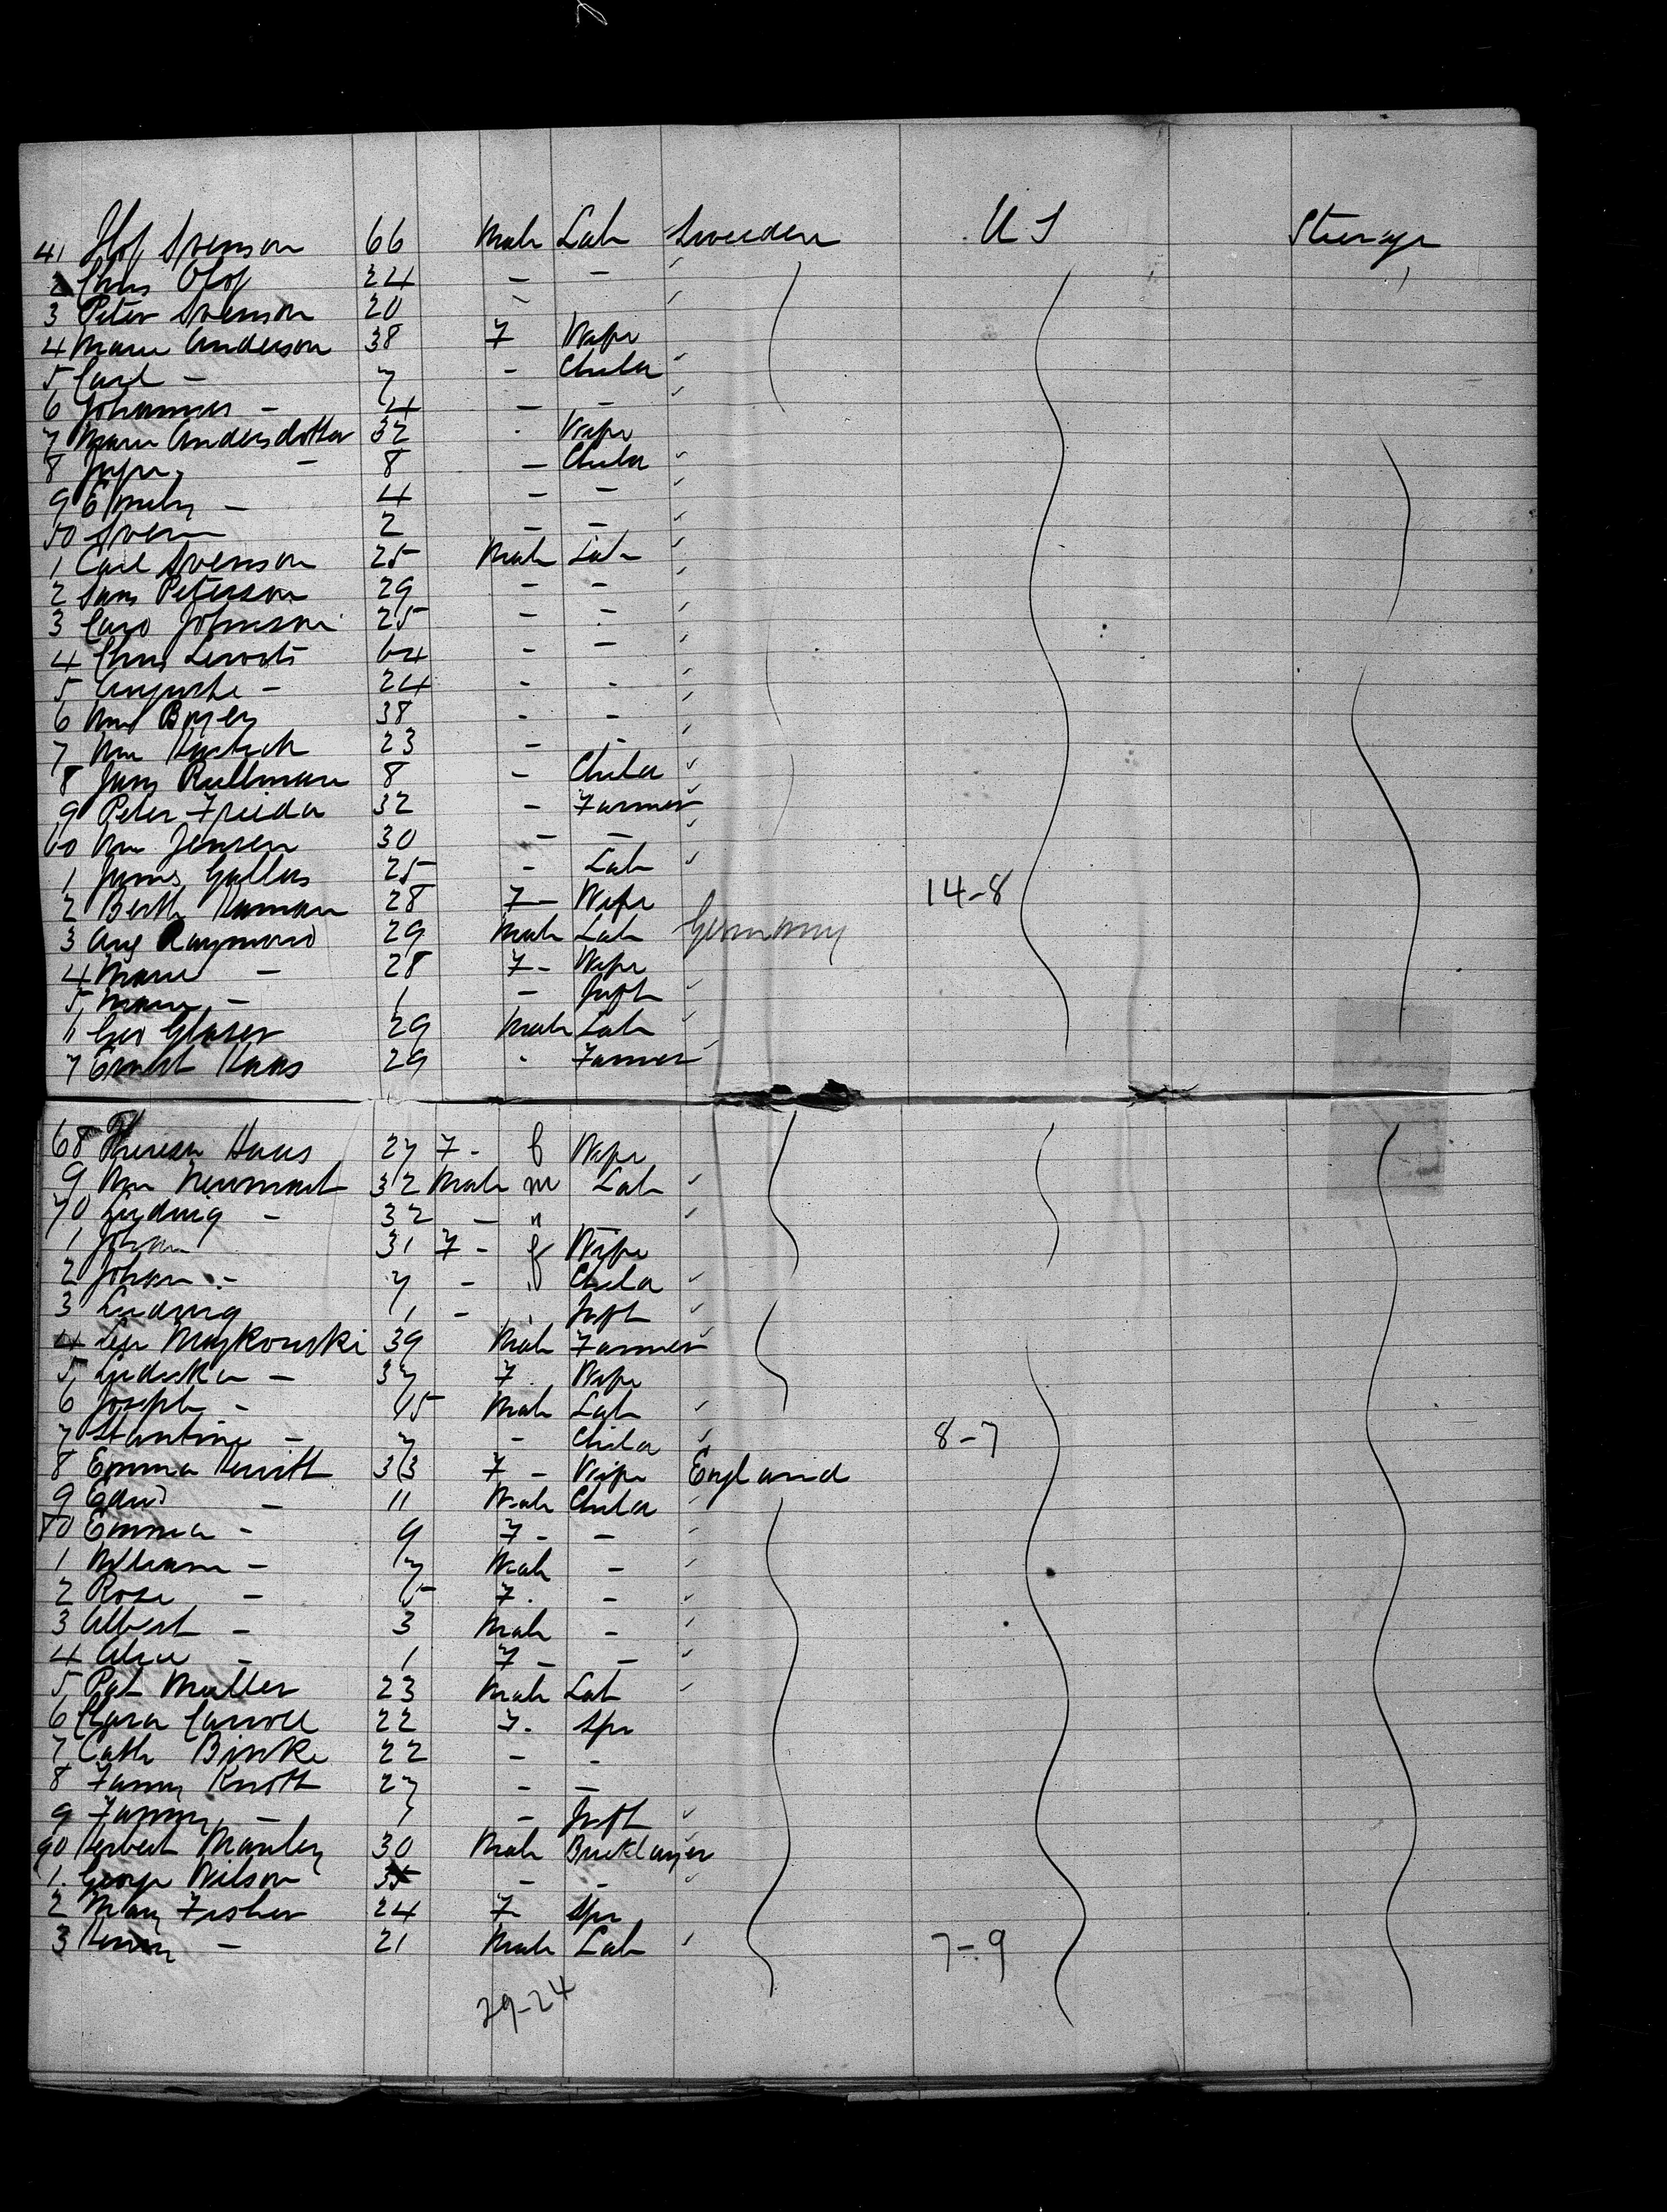 41 Olof Svenson 66 Male Lab Sweeden U S Steerage
2 Chas Olof 24 - -
3 Peter Svenson 20 -
4 Marie Anderson 38 F Wife
5 Carl - 7 - Child
6 Johannes - 4 - -
7 Marie Andersdotter 32 Wife
8 - 8 - Child
9 Emely - 4 - -
50 Sven 2 - -
1 Carl Svenson 25 Male Lab
2 Hans Peterson 29 - -
3 Johnson 25 - -
4 Chas 64 - -
5 Auguste - 24 - -
6 Wm 38 - -
7 Wm 23 - -
8 Rullman 8 - Child
9 Peter Frieda 32 - Farmer
60 Wm Jensen 30 - -
1 James Gallus 25 - Lab
2 Berth 28 F - Wife 14-8
3 Aug Raymond 29 Male Lab Germany
4 Marie - 28 F - Wife
5 Mary - 1 - Inft
6 Geo Glaser 29 Male Lab
7 Ernst Haas 29 Farmer
68 Theresa Haas 27 F - f Wife
9 Wm 32 Male m Lab
70 Ludwig - 32 - "
1 Johan 31 F - f Wife
2 Johan - 7 - Child
3 Ludwig 1 - Inft
4 39 Male Farmer
5 - 37 F Wife
6 Joseph - 15 Male Lab
7 Stantine - 7 - Child 8-7
8 Emma 33 F - Wife England
9 Edwd - 11 Male Child
80 Emma - 9 F - -
1 William - 7 Male -
2 Rose - 5 F -
3 Albert - 3 Male -
4 Alice - 1 F - -
5 Pat Muller 23 Male Lab
6 Clara Carroll 22 F. Spr
7 Cath 22 - -
8 Fanny Knott 27 - -
9 Fanny - 1 - Inft
90 Herbert Manley 30 Male Bricklayer
1 George Wilson 35 - -
2 Mary Fisher 24 F Spr
3 Henry - 21 Male Lab 7-9
29-24